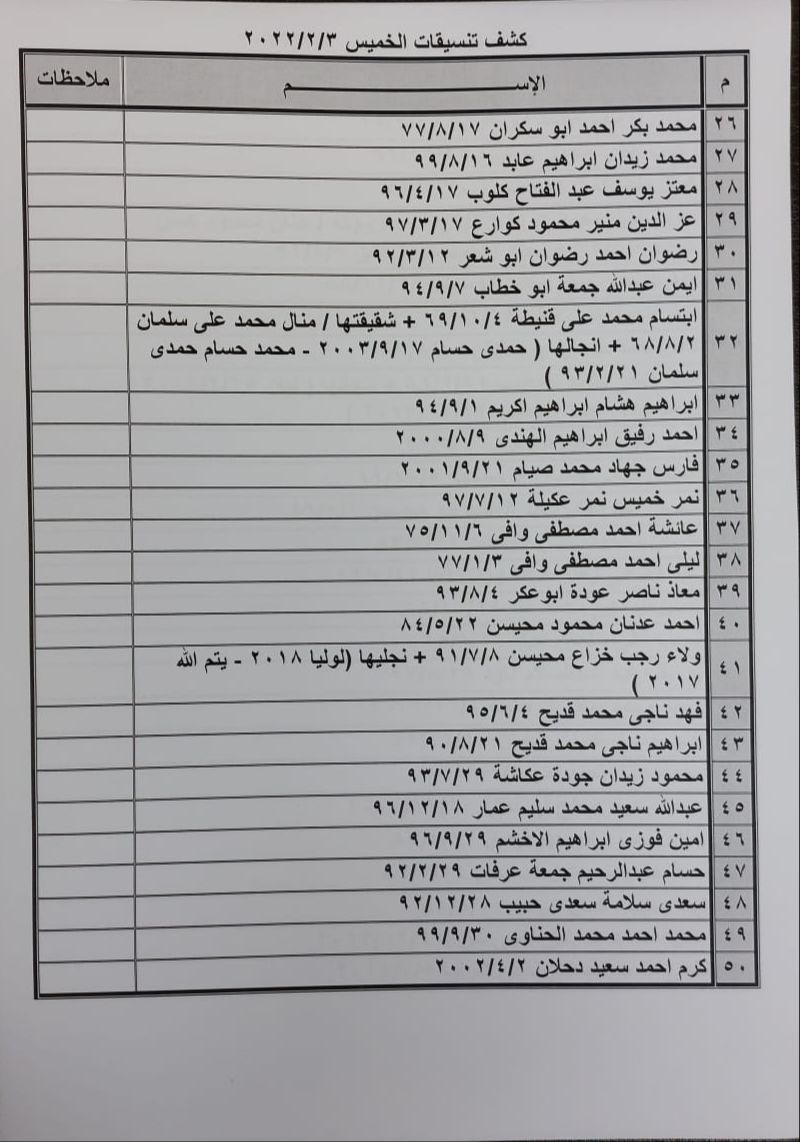 كشف تنسيقات الخميس ٢٠٢٢/٢/٣
م الإســـــــــم ملاحظات
٢٦ محمد بكر احمد ابو سكران ٧٧/٨/١٧
٢٧ محمد زيدان ابراهيم عابد ٩٩/٨/١٦
٢٨ معتز يوسف عبد الفتاح كلوب ٩٦/٤/١٧
٢٩ عز الدين منير محمود كوارع ٩٧/٣/١٧
٣٠ رضوان احمد رضوان ابو شعر ٩٢/٣/١٢
٣١ ايمن عبدالله جمعة ابو خطاب ٩٤/٩/٧
٣٢ ابتسام محمد على قنيطة ٦٩/١٠/٤ + شقيقتها / منال محمد على سلمان
٦٨/٨/٢ + انجالها ( حمدى حسام ٢٠٠٣/٩/١٧ - محمد حسام حمدى
سلمان ٩٣/٢/٢١ )
٣٣ ابراهيم هشام ابراهيم اكريم ٩٤/٩/١
٣٤ احمد رفيق ابراهيم الهندى ٢٠٠٠/٨/٩
٣٥ فارس جهاد محمد صيام ٢٠٠١/٩/٢١
٣٦ نمر خميس نمر عكيلة ٩٧/٧/١٢
٣٧ عائشة احمد مصطفى وافى ٧٥/١١/٦
٣٨ ليلى احمد مصطفى وافى ٧٧/١/٣
٣٩ معاذ ناصر عودة ابوعكر ٩٣/٨/٤
٤٠ احمد عدنان محمود محيسن ٨٤/٥/٢٢
٤١ ولاء رجب خزاع محيسن ٩١/٧/٨ + نجليها (لوليا ٢٠١٨ - يتم الله
٢٠١٧ )
٤٢ فهد ناجى محمد قديح ٩٥/٦/٤
٤٣ ابراهيم ناجى محمد قديح ٩٠/٨/٢١
٤٤ محمود زيدان جودة عكاشة ٩٣/٧/٢٩
٤٥ عبدالله سعيد محمد سليم عمار ٩٦/١٢/١٨
٤٦ امين فوزى ابراهيم الاخشم ٩٦/٩/٢٩
٤٧ حسام عبدالرحيم جمعة عرفات ٩٢/٢/٢٩
٤٨ سعدى سلامة سعدى حبيب ٩٢/١٢/٢٨
٤٩ محمد احمد محمد الحناوى ٩٩/٩/٣٠
٥٠ كرم احمد سعيد دحلان ٢٠٠٢/٤/٢